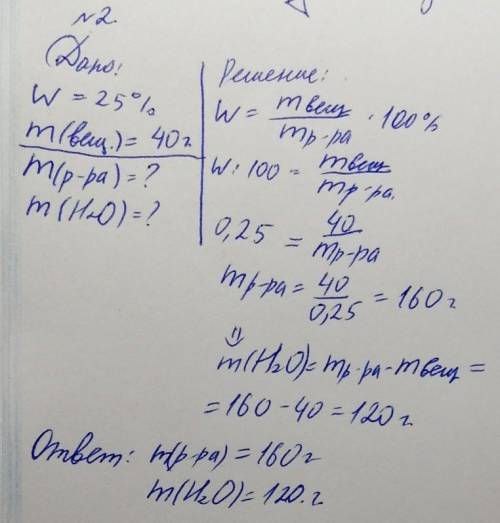 №2.
Дано:
W = 25%
m(вещ.) = 40г
m(р-ра) = ?
m(H₂O) = ?
Решение:
W = mвещ/mр-ра · 100%
W : 100 = mвещ/mр-ра.
0,25 = 40/mр-ра
mр-ра = 40/0,25 = 160г
m(H₂O) = mр-ра - mвещ =
= 160 - 40 = 120г.
Ответ: m(р-ра) = 160г
m(H₂O) = 120.г